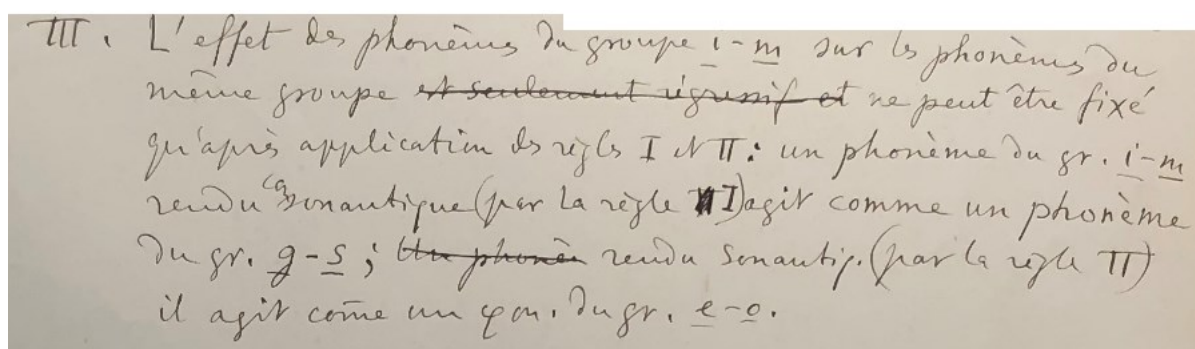 III. L'effet des phonèmes du groupe i-m sur les phonèmes du
même groupe est seulement régressif et ne peut être fixé
qu'après application des règles I et II : un phonème du gr. i-m
rendu consonantique (par la règle I) agit comme un phonème
du gr. g-s ; Un phonèm rendu sonantiq. (par la règle II)
il agit com̄e un φon. du gr. e-o.